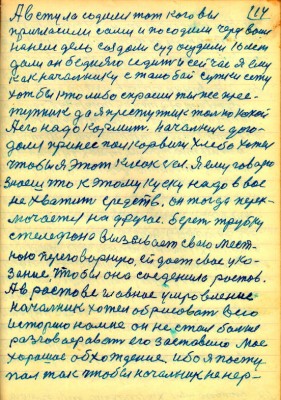 117
А вступа содили тот кого вы
пригласили сами и посодили через
на неси день создом суд осудили 10 лет
дали он бедняго седит и сейчас я ему
как начальнику с тобой сутки сту
хотбы кто либо спросил ты же прес-
тупник да я преступник только какой
Его надо кормит. начальник дого-
дался принес пол карваи Хлеба хотел
чтобы я этот кусок ел. Я ему говорю
знаеш что к этому куску надо в вас
не хватит средств. он тогда перек-
лючается на другое. берет трубку
с телефона вызывает свою мест-
ною переговорную, ей дает свое ука-
зание, чтобы она соеденила ростов.
А в ростове главное управление
начальник хотел обрисоват всю
историю на мне он не стал больше
разговаревать его заставило мое
хорошое обхождение. ибо я посту-
пал так чтобы начальник не нер-